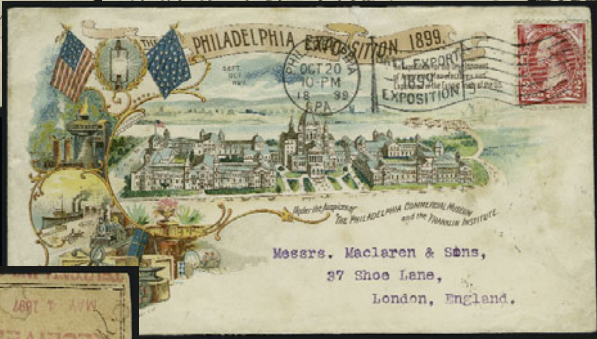 THE
PHILADELPHIA EXPOSITION. 1899.
SEPT.
OCT.
NOV.
PHILADELPHIA
OCT 20
10-PM
18 99
PA.
EXPORT
1899
EXPOSITION
Under the Auspices of
THE PHILADELPHIA COMMERCIAL MUSEUM
and the FRANKLIN INSTITUTE.
Messrs. Maclaren & Sons,
37 Shoe Lane,
London, England.
MAY 1 1897
RECEIVE